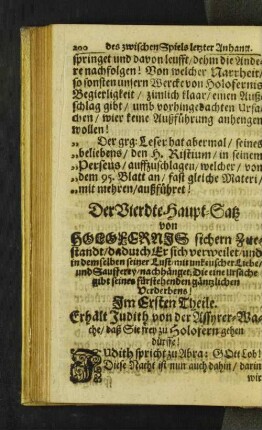 200 des zwischen Spiels letzter Anhang.
springet und davon leufft/dehm die Ande-
re nachfolgen! Von welcher Narrheit/
so sonsten unserm Wercke von Holofernis
Begierligkeit / zimlich klaar/ einen Auß-
schlag gibt / umb vorhingedachten Ursa-
chen / wier keine Außführung anhengen
wollen!
„ Der grg: Leser hat abermal / seines
„beliebens/ den H. Ristium / in seinem
„Perseus / auffzuschlagen/ welcher / von
„dem 95. Blatt an/ fast gleiche Materi/
„mit mehren/außführet!
Der Vierdte-Haupt-Satz
von
HOLOFERNIS sichern Zue-
standt/dadurch Er sich verweilet und
in demselben seiner Lust/mit unkeuscher Liebe/
und Saufferey/nachhänget: Die eine Ursache
gibt seines fürstehenden gänzlichen
Verderbens/
Im Ersten Theile.
Erhält Judith von der Assyrer-Wa-
che/ daß Sie frey zu Holofern gehen
dürffe!
Judith spricht zu Abra: GOtt Lob!
Diese Nacht ist nun auch dahin / darin
wir